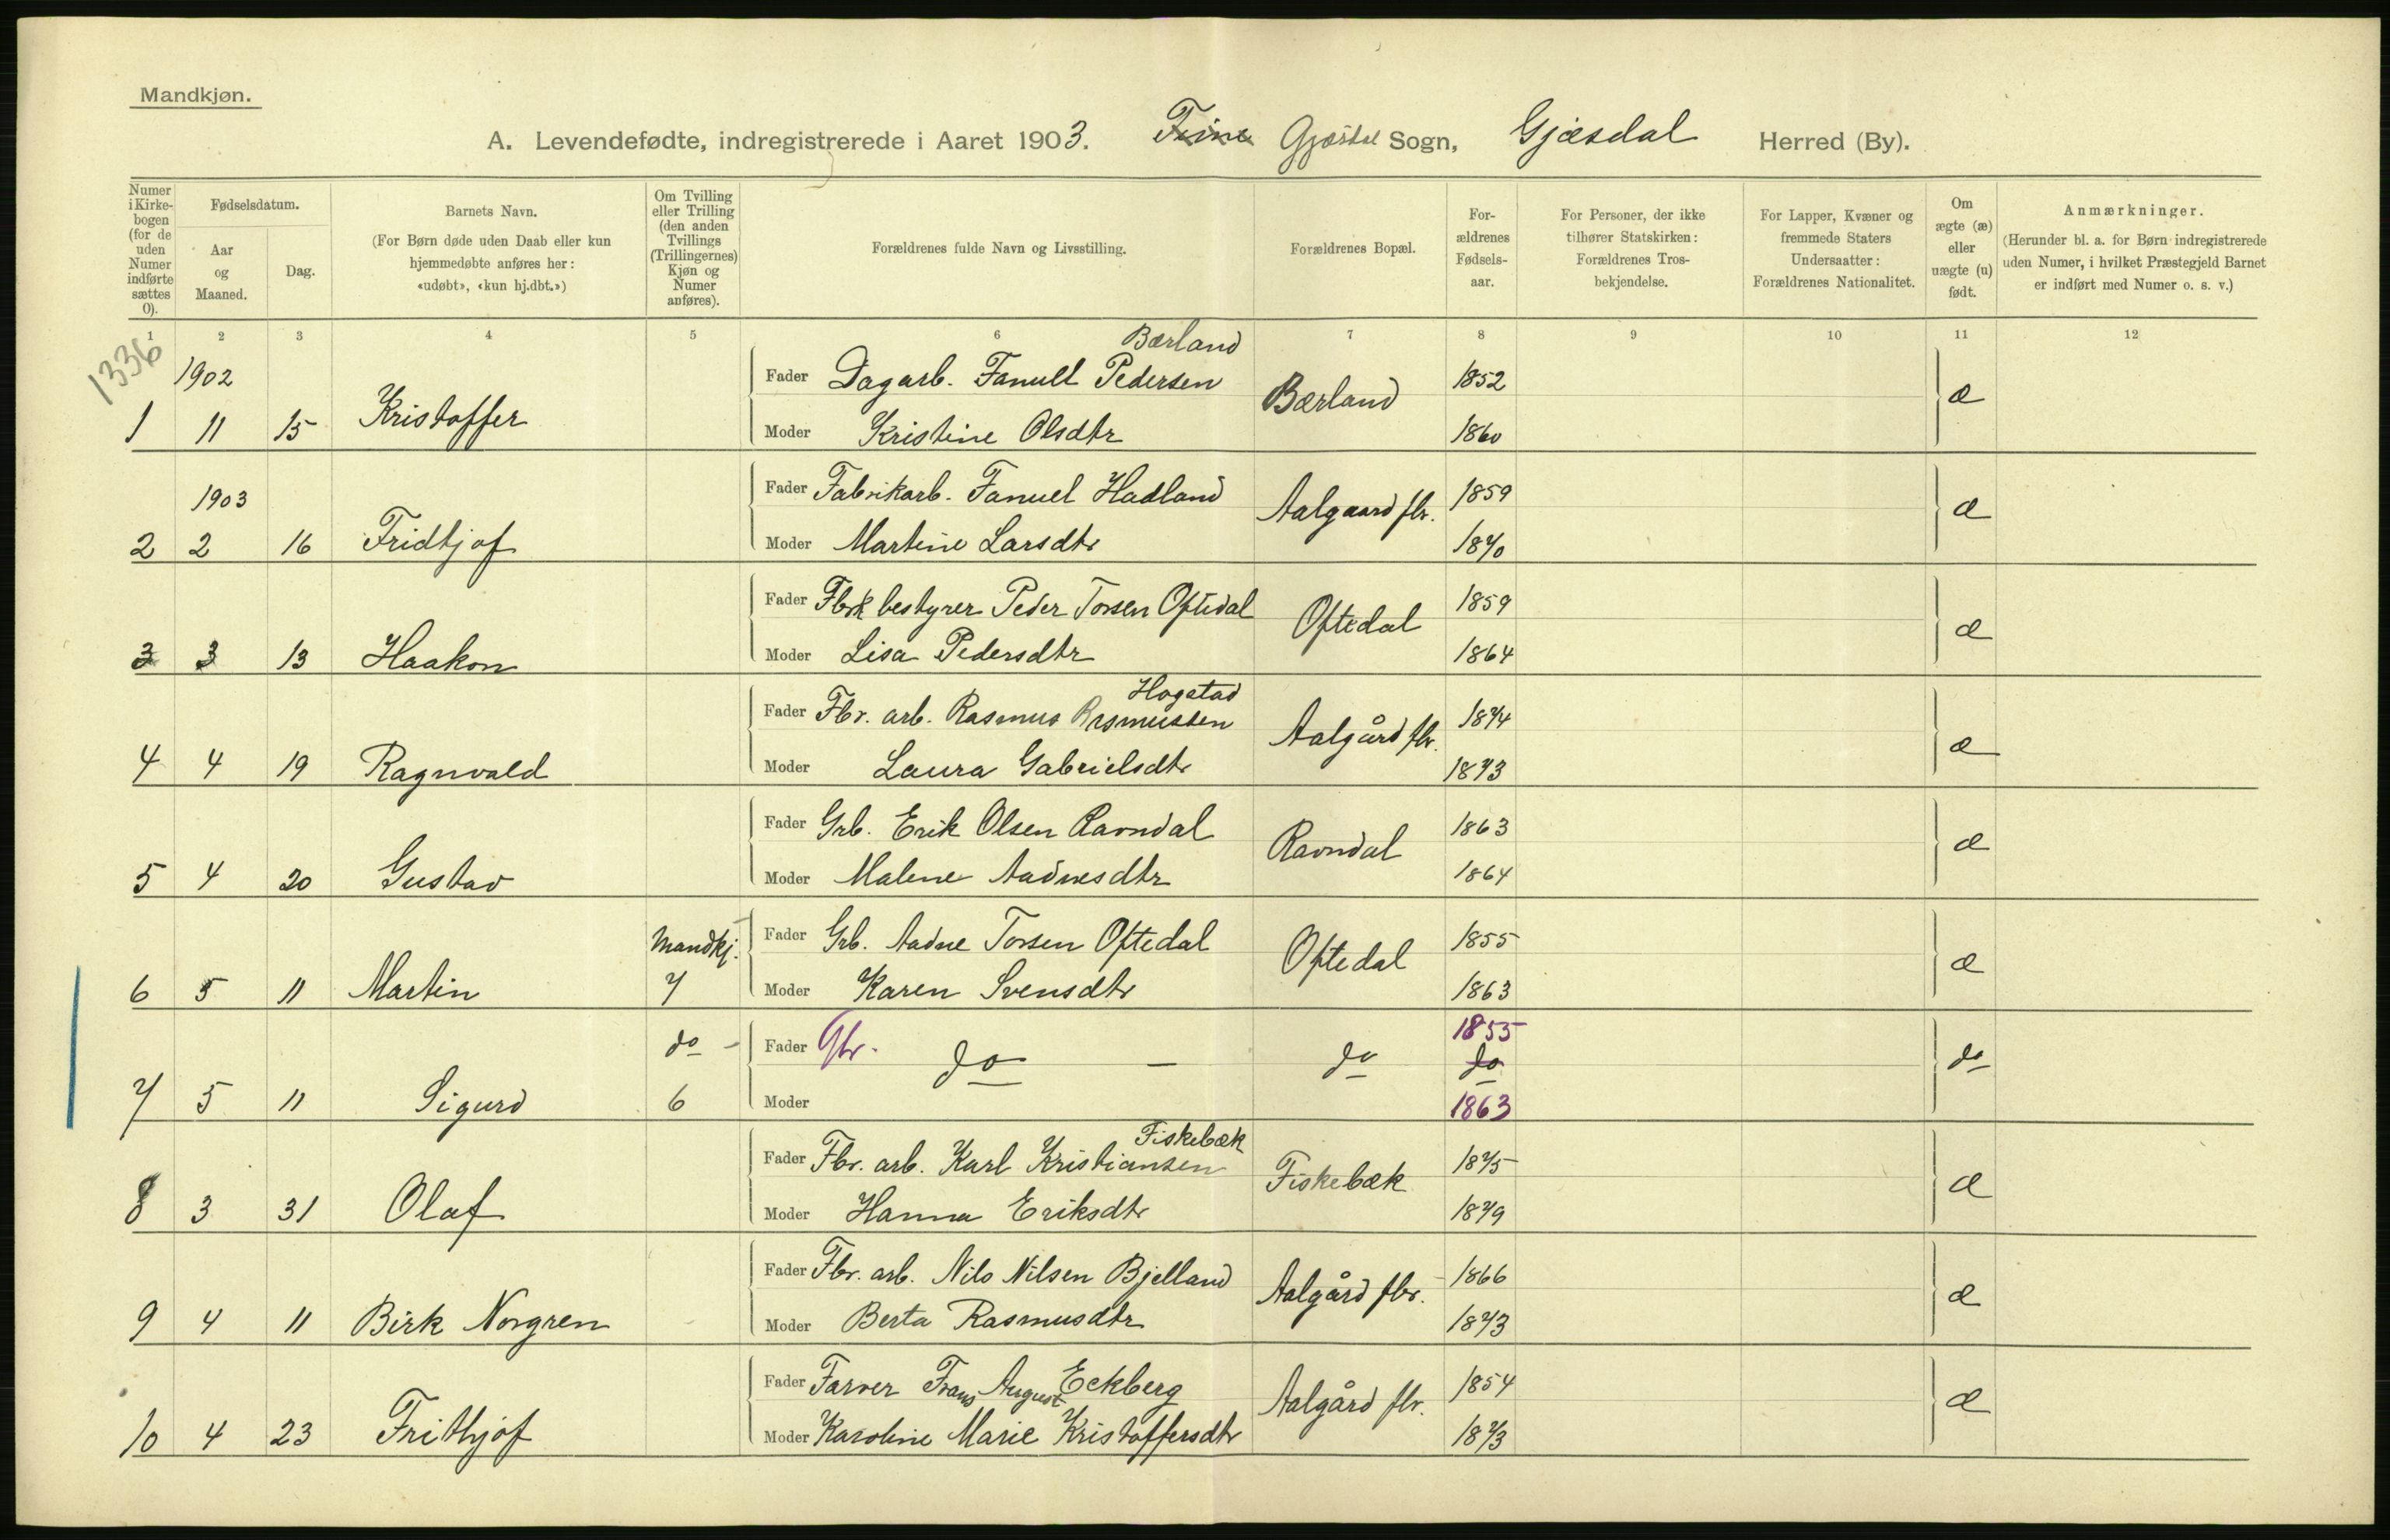 Mandkjøn.
A. Levendefødte, indregistrerede i Aaret 1903. Gjæsdal Sogn, Gjæsdal Herred (By).
Numer i Kirke-bogen (for de uden Numer indførte sættes 0).
Fødselsdatum.
Aar og Maaned.
Dag.
Barnets Navn.
(For Børn døde uden Daab eller kun hjemmedøbte anføres her: «udøbt», «kun hj.dbt.»)
Om Tvilling eller Trilling (den anden Tvillings (Trillingernes) Kjøn og Numer anføres).
Forældrenes fulde Navn og Livsstilling.
Forældrenes Bopæl.
For-ældrenes Fødsels-aar.
For Personer, der ikke tilhører Statskirken: Forældrenes Tros-bekjendelse.
For Lapper, Kvæner og fremmede Staters Undersaatter: Forældrenes Nationalitet.
Om ægte (æ) eller uægte (u) født.
Anmærkninger.
(Herunder bl. a. for Børn indregistrerede uden Numer, i hvilket Præstegjeld Barnet er indført med Numer o. s. v.)
1 2 3 4 5 6 7 8 9 10 11 12
1336
Bærland
1902 Fader Dagarb. Fanuel Pedersen Bærland 1852 æ
1 11 15 Kristoffer Moder Kristine Olsdtr 1860
1903 Fader Fabrikarb. Fanuel Hadland Aalgaard fbr. 1859 æ
2 2 16 Fridtjof Moder Martine Larsdtr 1870
Fader Fbrk bestyrer Peder Torsen Oftedal Oftedal 1859 æ
3 3 13 Haakon Moder Lisa Pedersdtr 1864
Hogstad
Fader Fbr. arb. Rasmus Rasmussen Aalgård fbr. 1874 æ
4 4 19 Ragnvald Moder Laura Gabrielsdtr 1873
Fader Grb. Erik Olsen Ravndal Ravndal 1863 æ
5 4 20 Gustav Moder Malene Aadnesdtr 1864
Mandkj. Fader Grb. Aadne Torsen Oftedal Oftedal 1855 æ
6 5 11 Martin 7 Moder Karen Svensdtr 1863
do - Fader Gbr. do - do 1855 do do
7 5 11 Sigurd 6 Moder 1863
Fiskebæk
Fader Fbr. arb. Karl Kristiansen Fiskebæk 1875 æ
8 3 31 Olaf Moder Hanna Eriksdtr 1879
Fader Fbr. arb. Nils Nilsen Bjelland Aalgård fbr. 1866 æ
9 4 11 Birk Norgren Moder Berta Rasmusdtr 1873
Fader Farver Frans August Eckberg Aalgård fbr. 1854 æ
10 4 23 Frithjof Moder Karoline Marie Kristoffersdtr 1873